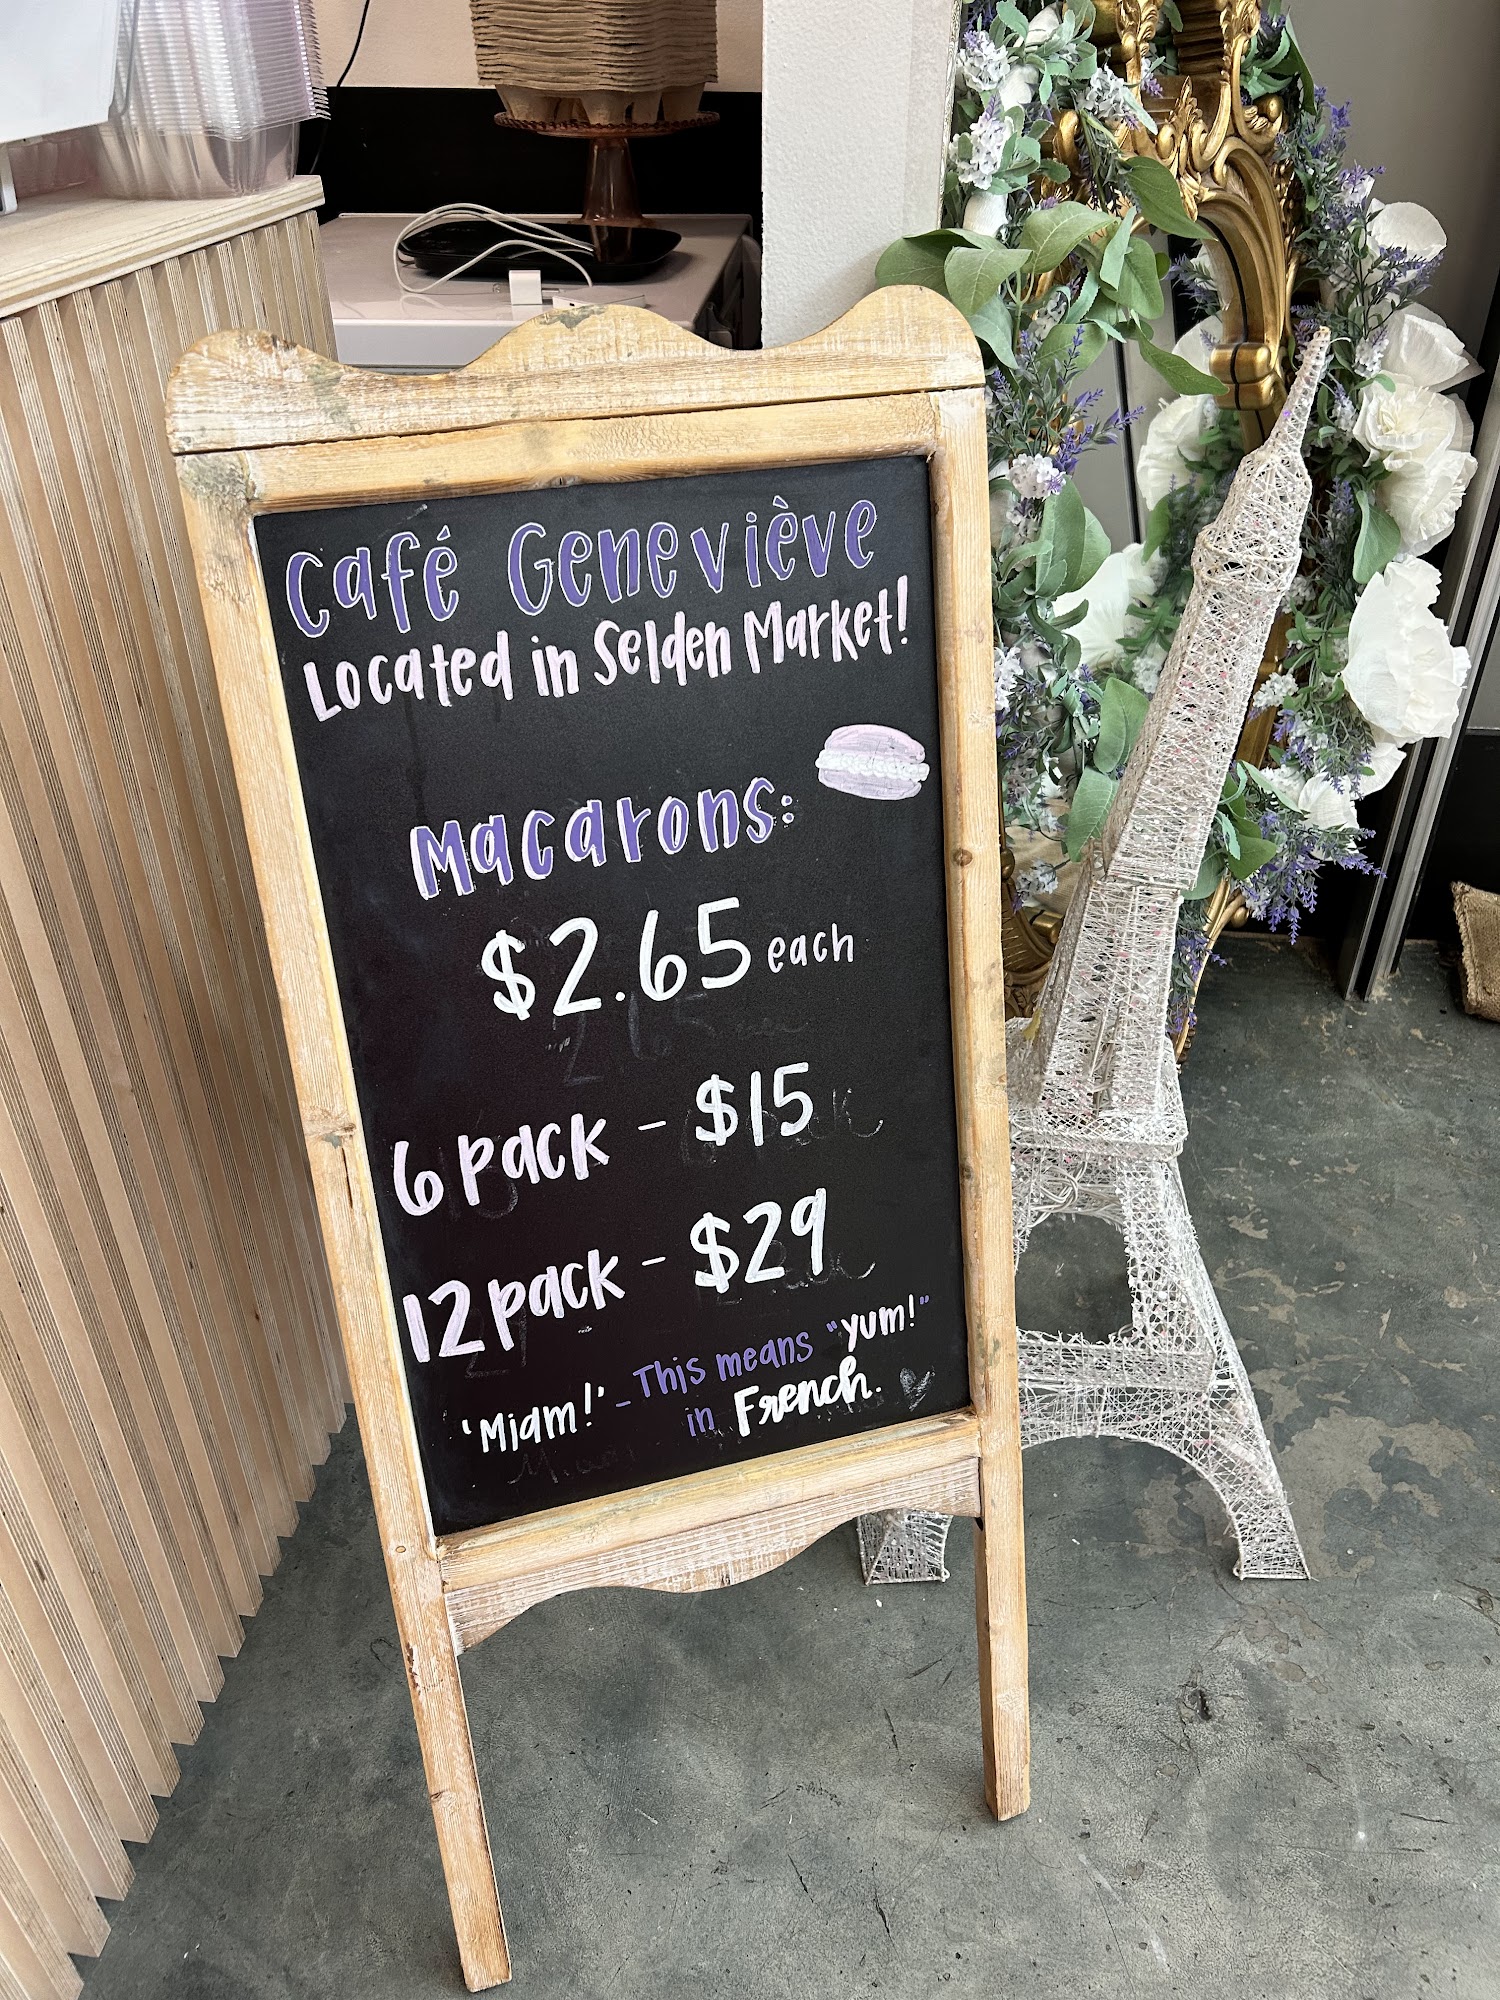 Café Geneviève
Located in Selden Market!
Macarons:
$2.65 each
6 pack - $15
12 pack - $29
'Miam!' - This means "yum!"
in French.